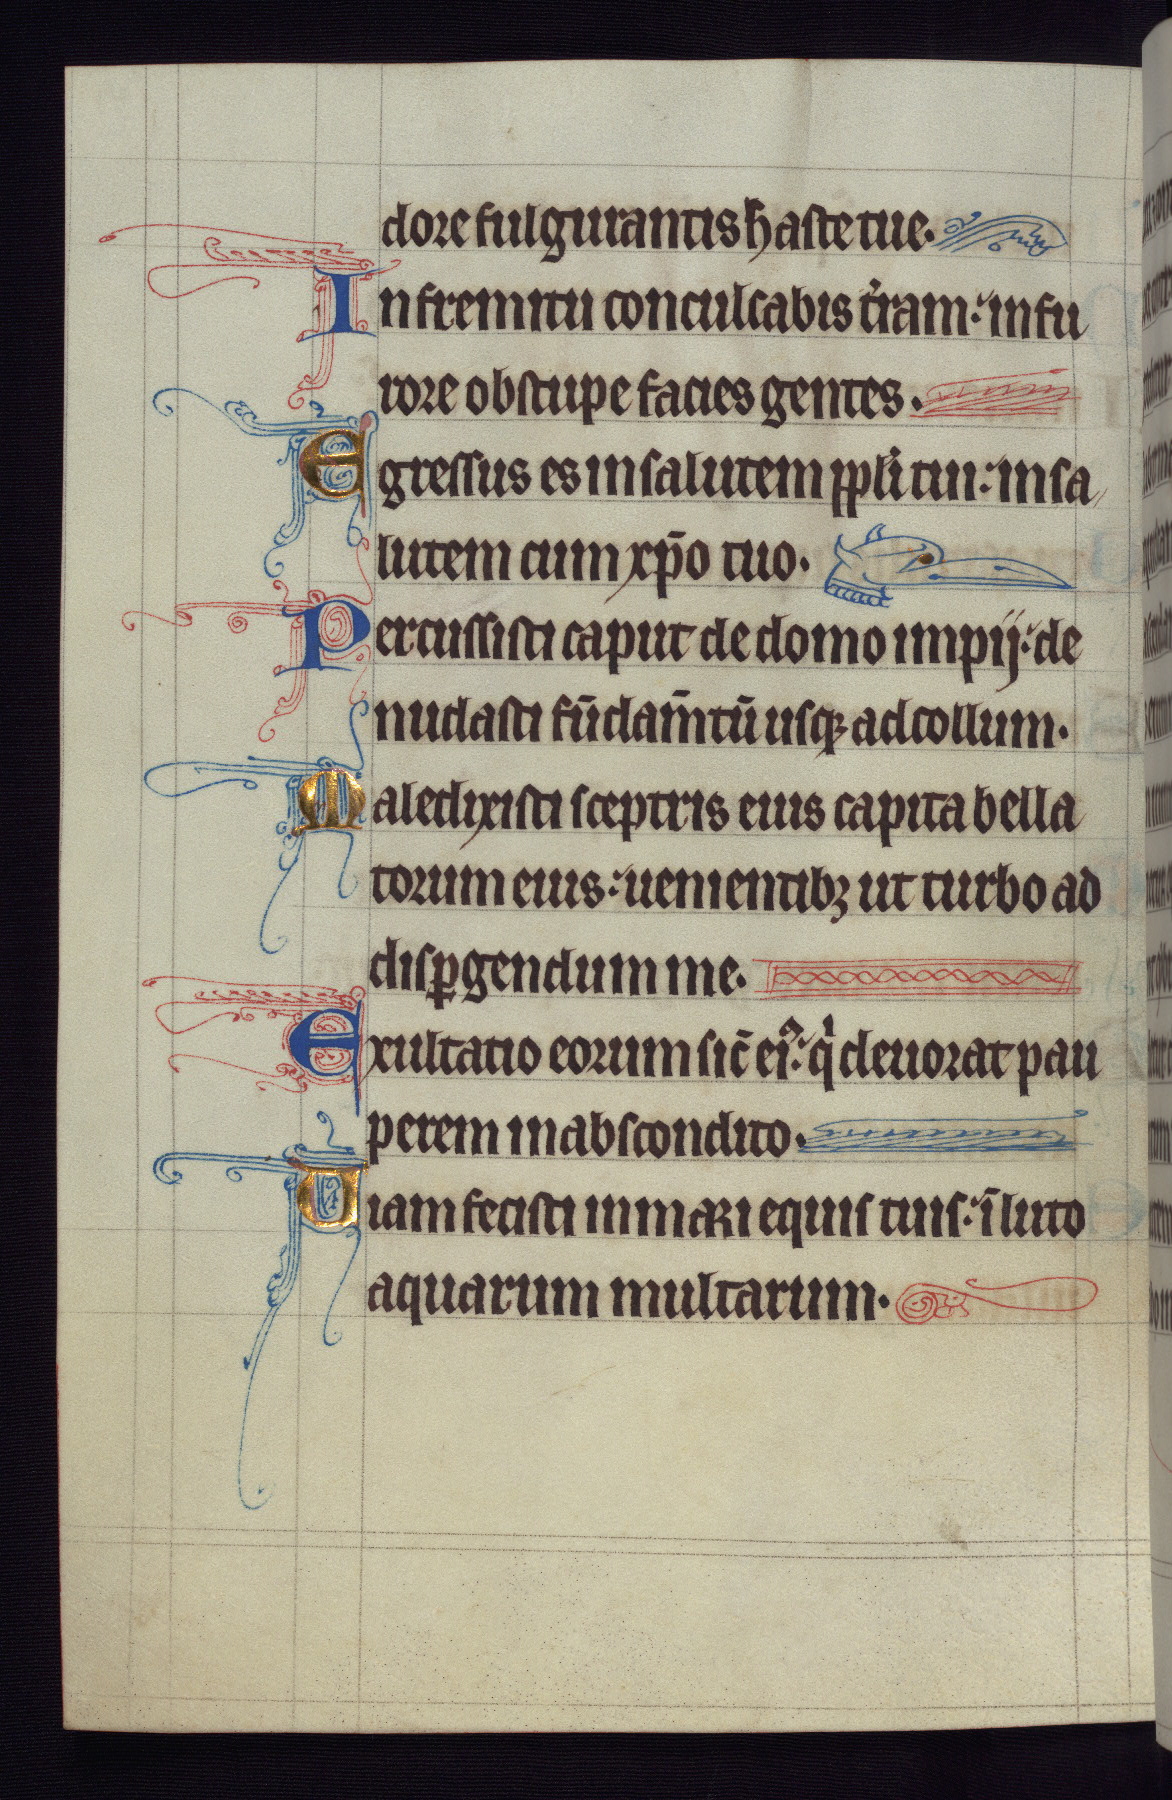 dore fulgurantis haste tue.
In fremitu conculcabis t̄ram: in fu
rore obstupe facies gentes.
Egressus es in salutem ppl̄i tui: in sa
lutem cum xp̄o tuo.
Percussisti caput de domo impij: de
nudasti fūdam̄tū usqꝫ ad collum.
Maledixisti sceptris eius capita bella
torum eius: uenientibꝫ ut turbo ad
disꝑgendum me.
Exultatio eorum sic̄ ei᷒: qͥ deuorat pau
perem in abscondito.
Uiam fecisti in mari equis tuis: ī luto
aquarum multarum.